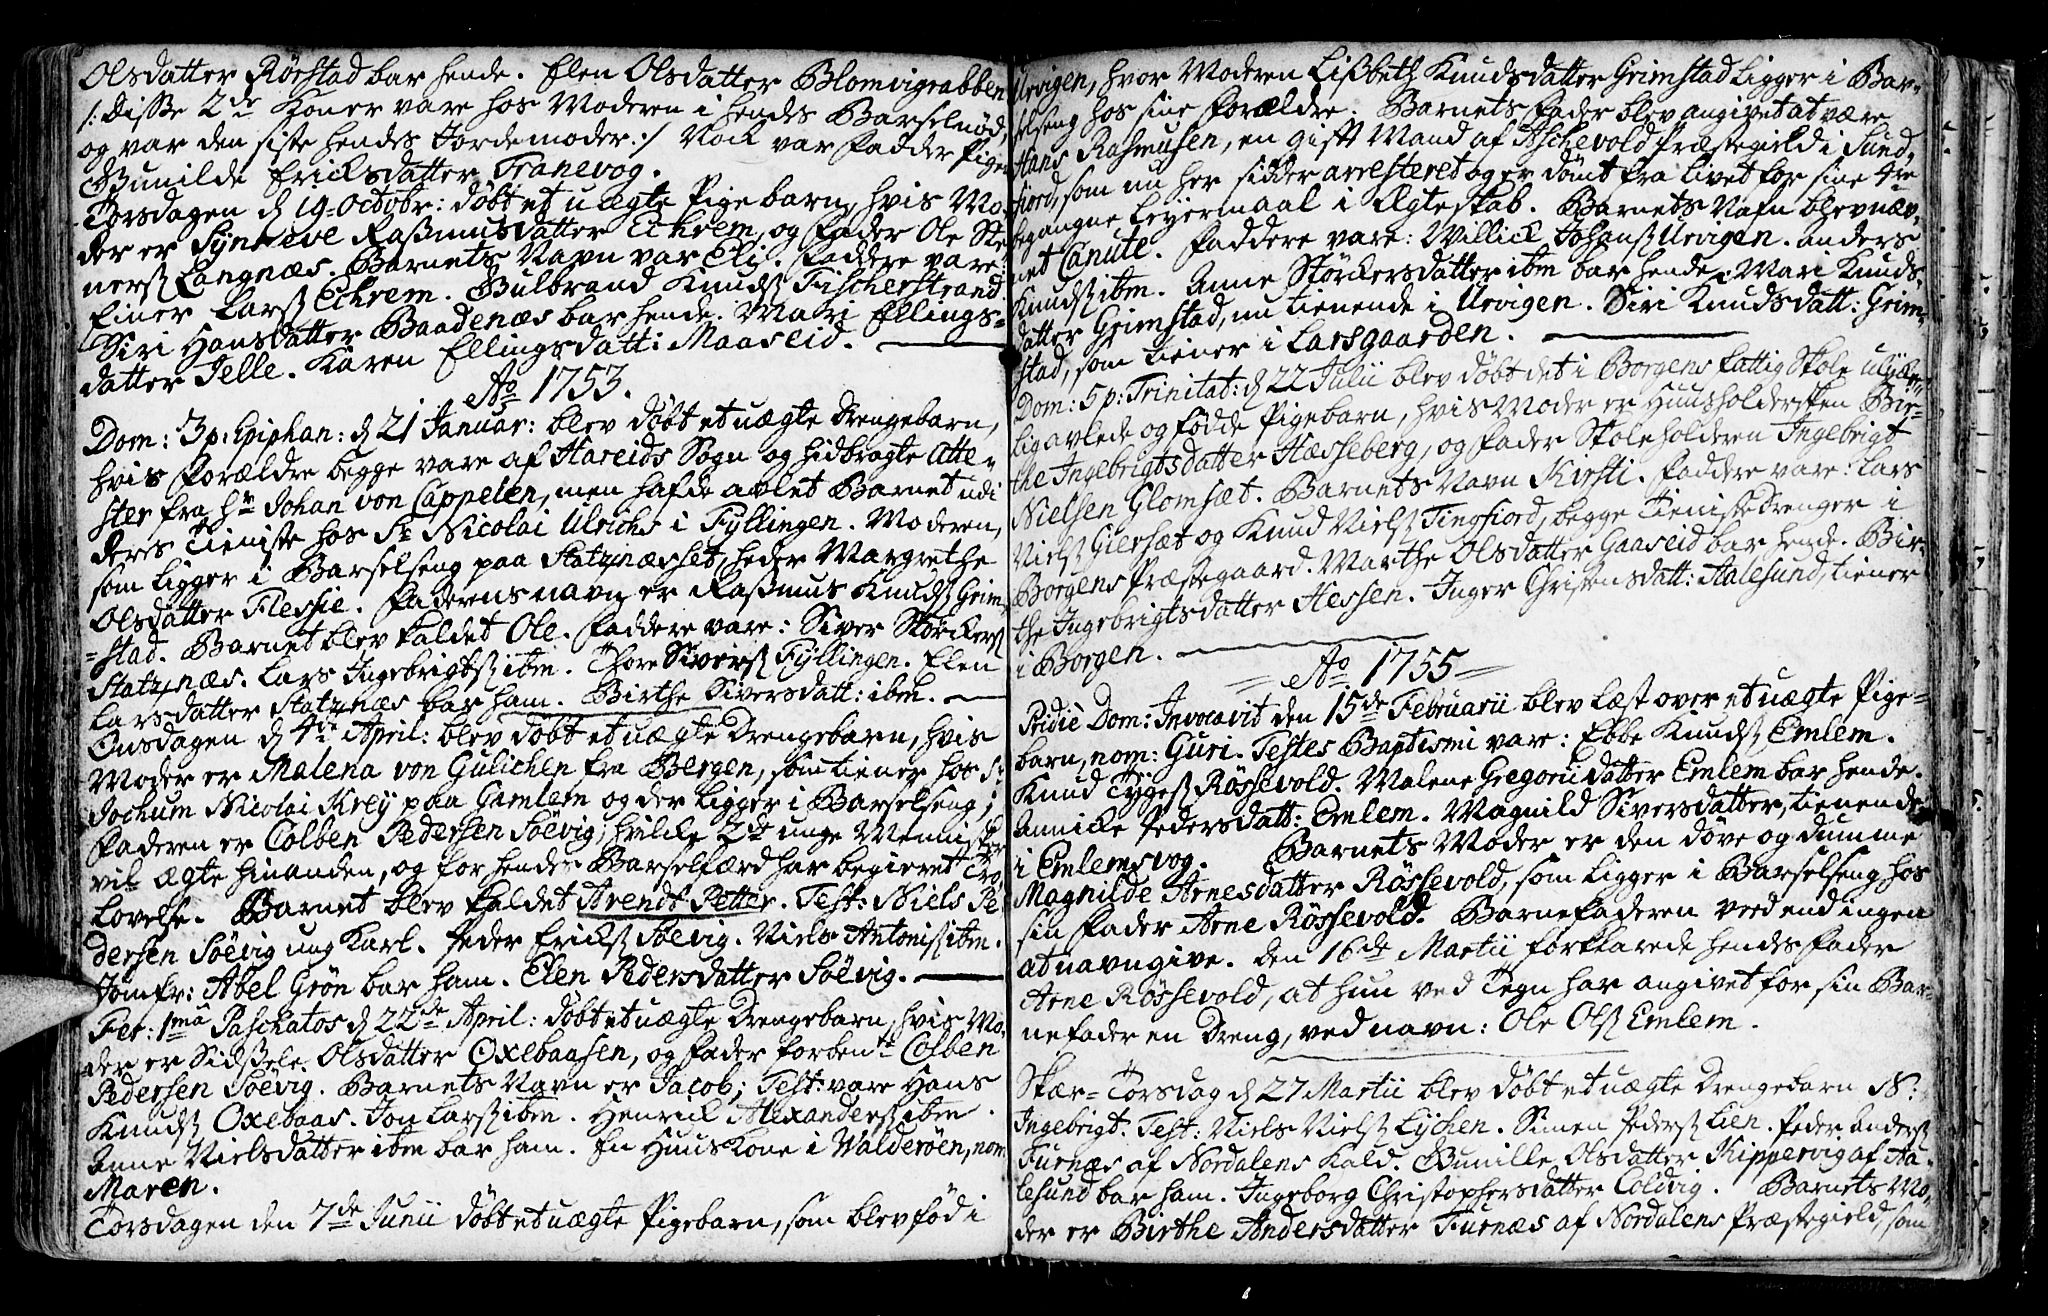 Olsdatter Rörstad bar hende. Elen Olsdatter Blomvigrabben
/: Disse 2de Koner vare hos Moderen i hendes Barselnöd,
og var den siste hendes Jordemoder :/ Nok var Fadder Pigen
Gunilde Ericksdatter Tranevog.
Torsdagen d 19. Octobr: döbt et uægte Pigebarn, hvis Mo-
der er Synneve Rasmusdatter Eckrem, og Fader Ole Ste-
nerss Langnæs. Barnets Navn var Eli. Faddere vare
Einer Larss Eckrem. Gulbrand Knudss Fischerstrand
Siri Hansdatter Baadenæs bar hende. Mari Ellings-
datter Jelle. Karen Ellingsdatt: Maaseid.
Ao 1753.
Dom: 3 p: Epiphan: d 21 Januar: blev döbt et uægte Drengebarn,
hvis Forældre begge vare af Hareids Sogn og hidbragte Atte-
ster fra Hr Johan von Cappelen, men hafde avlet Barnet udi
deres Tieniste hos Sr Nicolai Ulrichs i Fyllingen. Moderen,
som ligger i Barselseng paa Statznæsset, heder Margrethe
Olsdatter Flessie. Faderens navn er Rasmus Knudss Grim-
=stad. Barnet blev kaldet Ole. Faddere vare: Siver Störckerss
Statznæs. Lars Ingebrigtss ibm. Thore Siverss Fyllingen. Elen
Larsdatter Statznæs bar ham. Birthe Siversdatt: ibm.
Onsdagen d 4de April: blev döbt et uægte Drengebarn, hvis
Moder er Malena von Gulichen fra Bergen, som tiener hos Sr
Jochum Nicolai Krey paa Gamlem og der ligger i Barselseng;
Faderen er Colben Pedersen Söevig, hvilke 2de unge Mennisker
vil ægte hinanden, og for hendes Barselfærd har begieret Tro-
lovelse. Barnet blev kaldet Arendt Petter. Test: Niels Pe-
dersen Söevig ung Karl. Peder Erickss Söevig. Niels Antoniss ibm.
Jomfr: Abel Grön bar ham. Elen Pedersdatter Söevig.
Fer: 1ma Paschatos d 22de April: döbt et uægte Drengebarn, hvis Mo-
der er Sidsele Olsdatter Oxebaasen, og Fader forbente Colben
Pedersen Söevig. Barnets Navn er Jacob; Test: vare Hans
Knudss Oxebaas. Jon Larss ibm. Henrick Alexanderss ibm.
Anne Nielsdatter ibm bar ham. En Huuskone i Walderöen, nom
Maren.
Torsdagen den 7de Junii döbt et uægte Pigebarn, som blev föd i
Urvigen, hvor Moderen Lisbeth Knudsdatter Grimstad ligger i Bar-
selseng hos sine Forældre. Barnets Fader blev angivet at være
Hans Rasmusen, en gift Mand af Aschevold Præstegield i Sund-
fiord, som nu her sidder arresteret og er dömt fra livet for sine 4re
begangne Leyermaal i Ægteskab. Barnets Nafn blev næv-
net Canute. Faddere vare: Willick Johanss Urvigen. Anders
Knudss ibm. Anne Störckersdatter ibm bar hende. Mari Knuds-
datter Grimstad, nu tienende i Urvigen. Siri Knudsdatt: Grim-
stad, som tiener i Larsgaarden.
Dom: 5 p: Trinitat: d 22 Julii blev döbt det i Borgens Fattig Skole
lig avlede og födde Pigebarn, hvis Moder er Huusholdersken Bir-
the Ingebrigtsdatter Hæsseberg, og Fader Skoleholderen Ingebrigt
Nielsen Glomsæt. Barnets Navn Kirsti. Faddere vare: Lars
Nielss Giersæt og Knud Nielss Tingfiord, begge Tienistedrenger i
Borgens Præstegaard. Marthe Olsdatter Gaaseid bar hende. Bir-
the Ingebrigtsdatter Hessen. Inger Christensdatt: Aalesund, tiener
i Borgen.
Ao 1755
Pridie Dom: Invocavit den 15de Februarii blev læst over et uægte Pige-
barn, nom: Guri. Testes Baptismi vare: Ebbe Knudss Emlem.
Knud Tygess Rössevold. Malene Gregorii datter Emlem bar hende.
Annicke Pedersdatt: Emlem. Magnild Siversdatter, tienende
i Emlemsvog. Barnets Moder er den döve og dumme
Magnilde Arnesdatter Rössevold, som ligger i Barselseng hos
sin Fader Arne Rössevold. Barnefaderen veed end ingen
at navngive. Den 16de Martii forklarede hendes Fader
Arne Rössevold, at hun ved Tegn har angivet for sin Bar-
nefader en Dreng, ved navn: Ole Olss Emlem.
Skær-Torsdag d 27 Martii blev döbt et uægte Drengebarn N:
Ingebrigt. Test: Niels Nielss Lychen. Simen Pederss Lien. Peder Anderss
Furnæs af Nordalens Kald. Gunille Olsdatter Kippervig af Aa-
lesund bar ham. Ingeborg Christophersdatter Coldvig. Barnets Mo-
der er Birthe Andersdatter Furnæs af Nordalens Præstegield, som